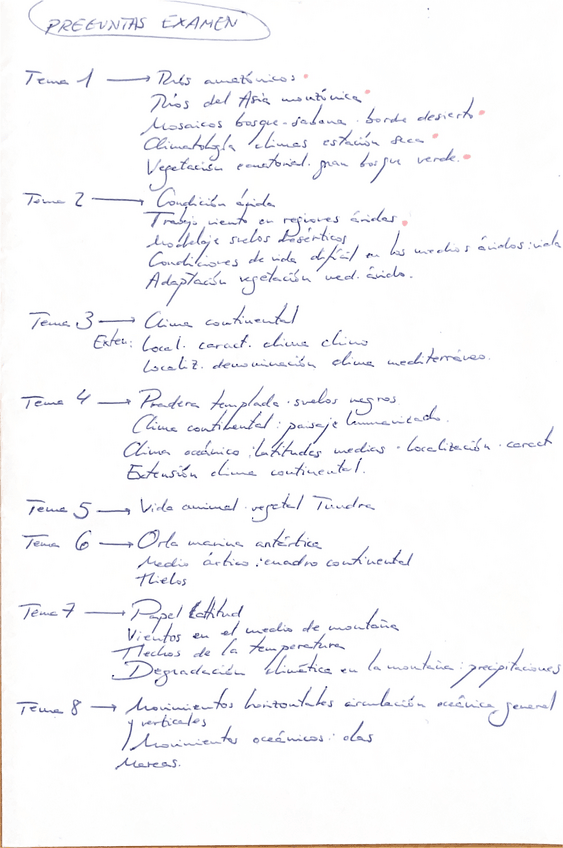 PREGUNTAS EXAMEN
Tema 1 → Ríos amazónicos
Ríos del Asia monzónica
Mosaicos bosque-sabana · borde desierto
Climatología climas estación seca
Vegetación ecuatorial. gran bosque verde.
Tema 2 → Condición árida
Trabajo viento en regiones áridas.
Modelaje suelos desérticos
Condiciones de vida difícil en los medios áridos: vida
Adaptación vegetación med. árido.
Tema 3 → Clima continental
Exten: Local. caract. clima chino
Localiz. denominación clima mediterráneo.
Tema 4 → Pradera templada · suelos negros
Clima continental: paisaje humanizado.
Clima oceánico: latitudes medias · localización · caract
Extensión clima continental.
Tema 5 → Vida animal · vegetal Tundra
Tema 6 → Orla marina antártica
Medio ártico: cuadro continental
Hielos
Tema 7 → Papel latitud
Vientos en el medio de montaña
Hechos de la temperatura
Degradación climática en la montaña: precipitaciones
Tema 8 → Movimientos horizontales circulación oceánica general
y verticales
Movimientos oceánicos: olas
Mareas.